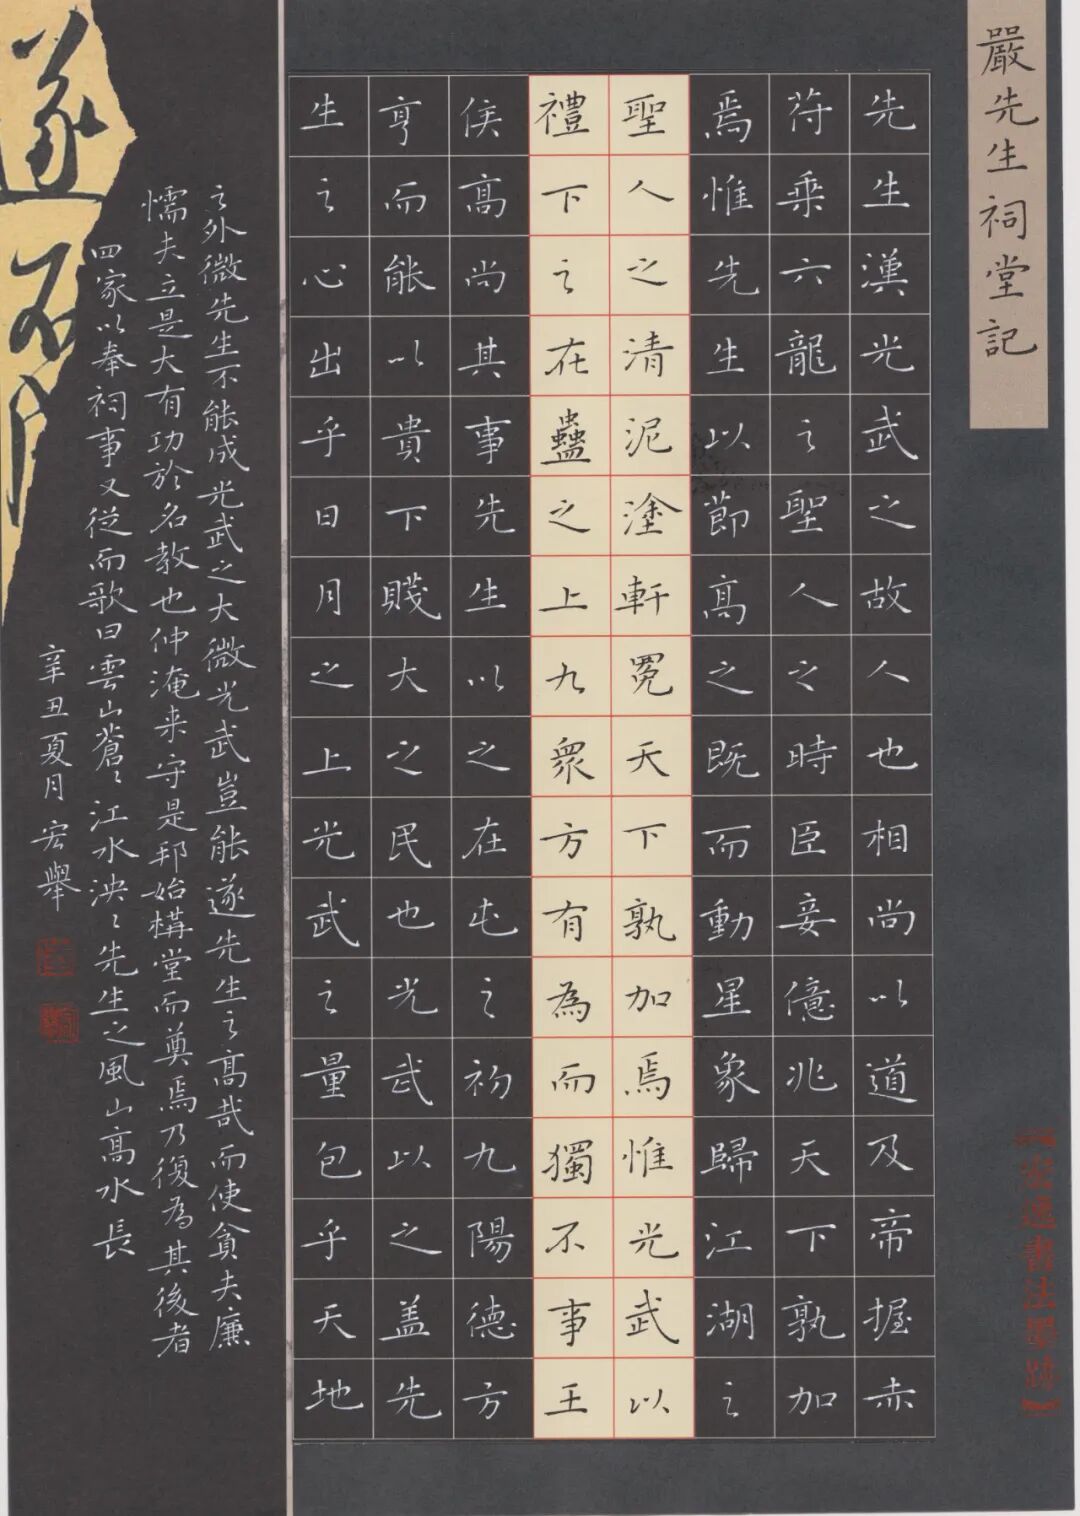 嚴先生祠堂記
先生漢光武之故人也相尚以道及帝握赤
符乘六龍之聖人之時臣妾億兆天下孰加
焉惟先生以節高之既而動星象歸江湖之
聖人之清泥塗軒冕天下孰加焉惟光武以
禮下之在蠱之上九衆方有為而獨不事王
侯高尚其事先生以之在屯之初九陽德方
亨而能以貴下賤大之民也光武以之蓋先
生之心出乎日月之上光武之量包乎天地
之外微先生不能成光武之大微光武豈能遂先生之高哉而使貪夫廉
懦夫立是大有功於名教也仲淹来守是邦始構堂而奠焉乃復為其後者
四家以奉祠事又從而歌曰雲山蒼〻江水泱〻先生之風山高水長
辛丑夏月宏舉
宏逸書法墨跡